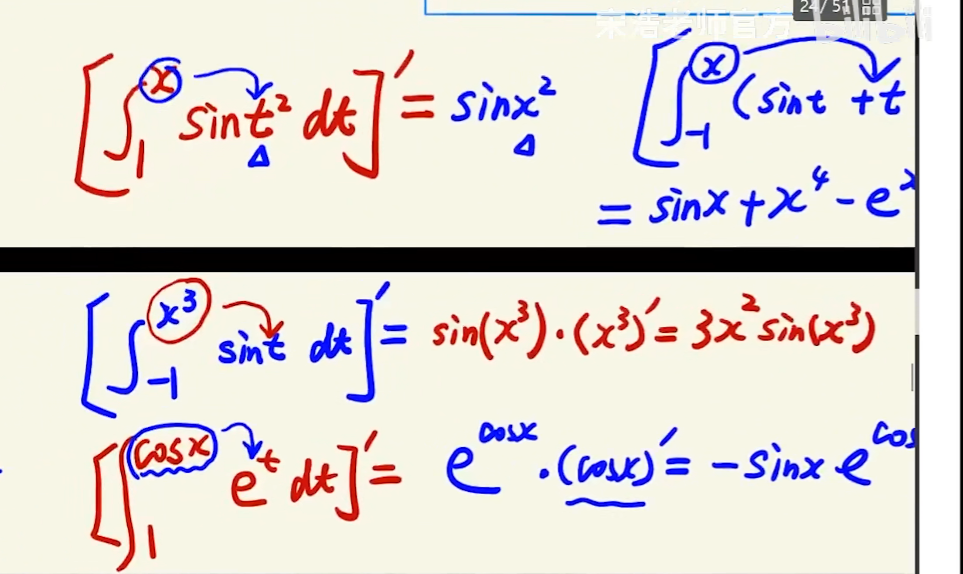 24/51
宋浩老师官方
[∫₁ˣ sint² dt]′ = sinx²
[∫₋₁ˣ (sint + t
= sinx + x⁴ - eˣ
[∫₋₁^(x³) sint dt]′ = sin(x³)·(x³)′ = 3x² sin(x³)
[∫₁^(cosx) eᵗ dt]′ = e^(cosx)·(cosx)′ = -sinx e^(cos